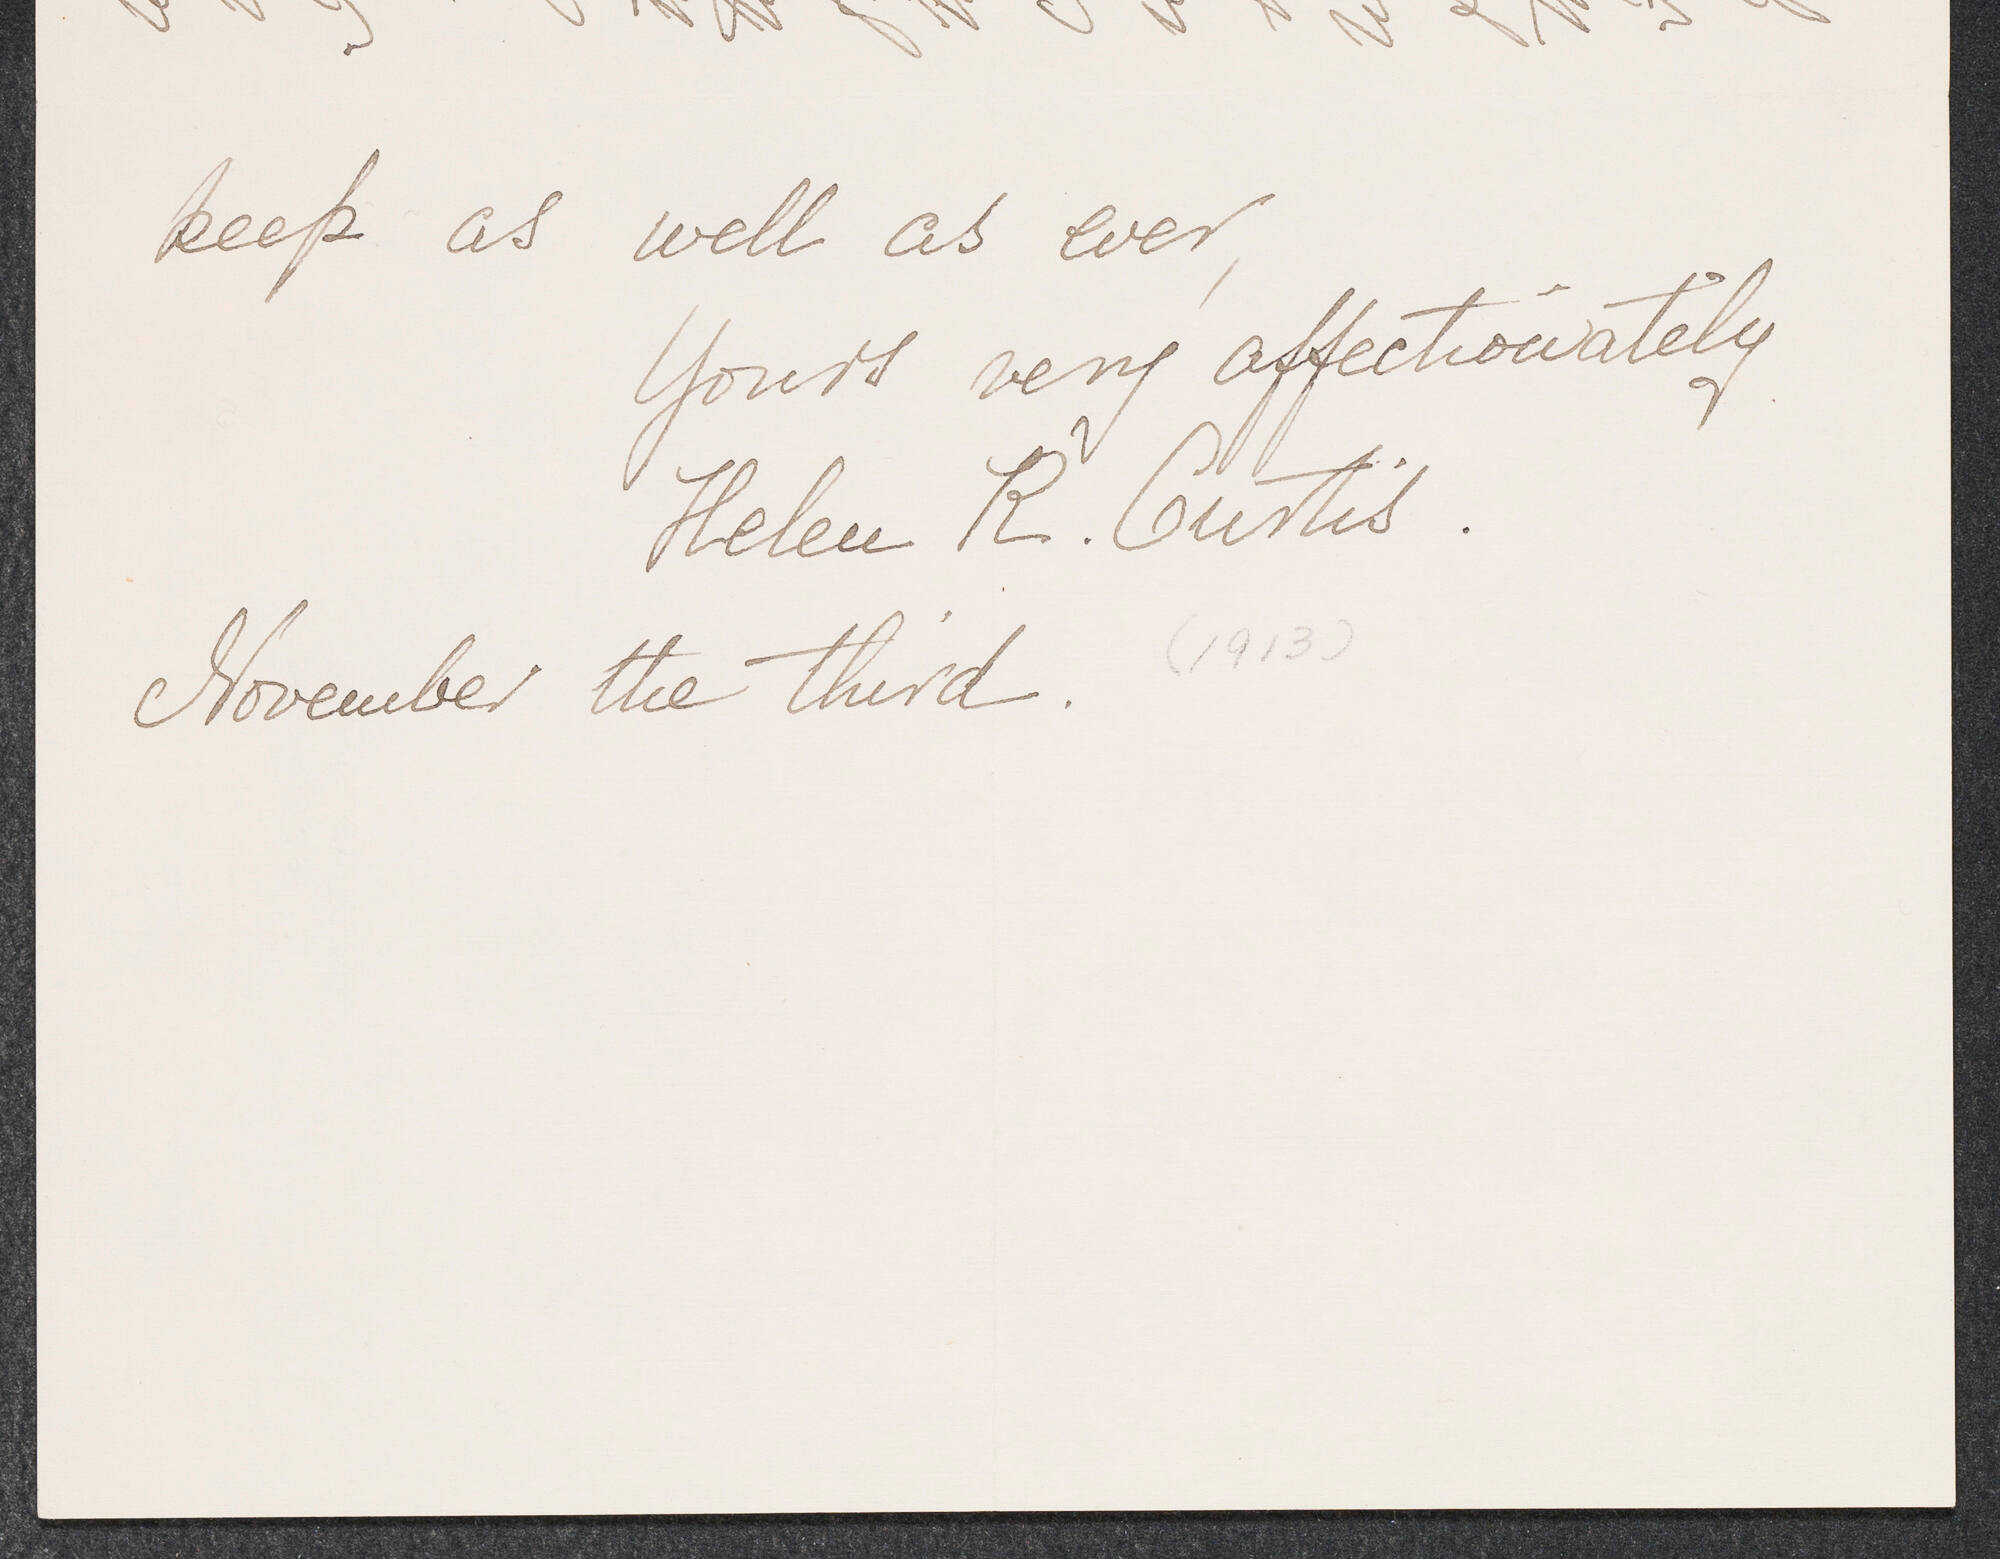 keep as well as ever,
Yours very affectionately
Helen R. Curtis.
November the third. (1913)